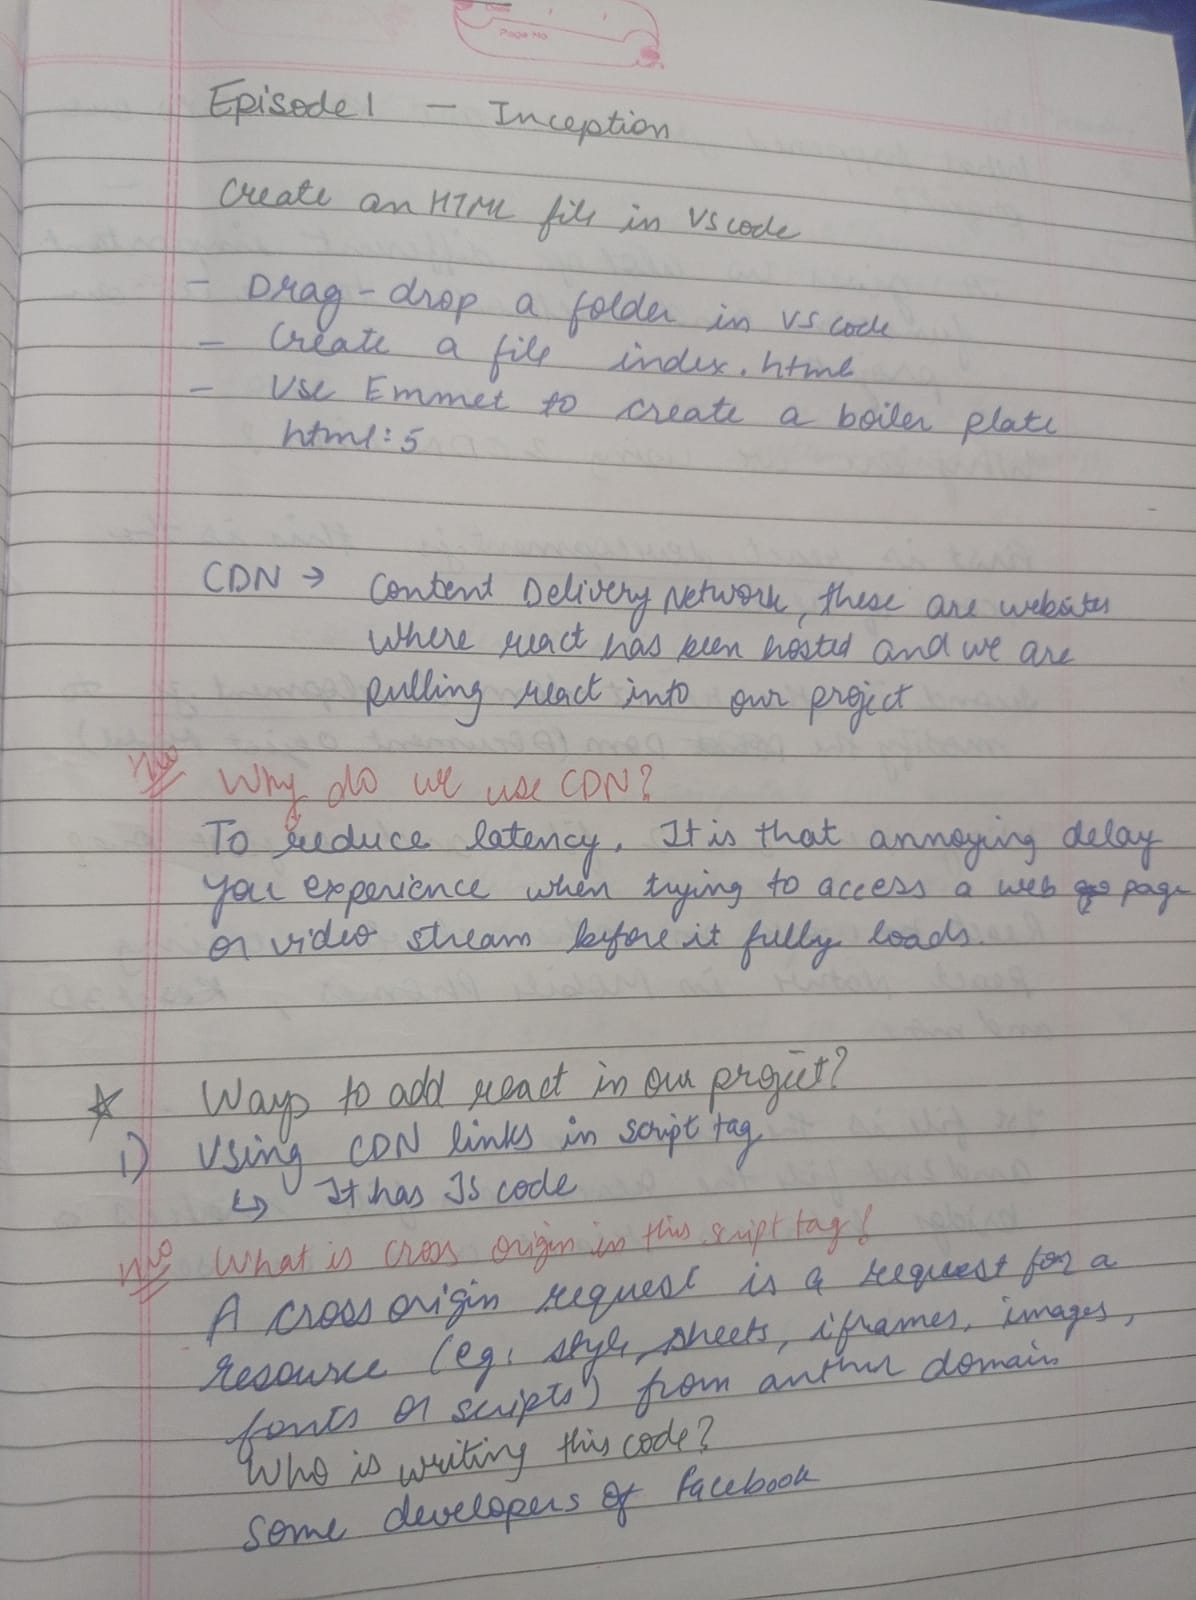 Page No
Episode 1 - Inception
Create an HTML file in VS code
- Drag-drop a folder in VS code
- Create a file index.html
- Use Emmet to create a boiler plate
html:5
CDN → Content Delivery Network, these are websites
where react has been hosted and we are
pulling react into our project
Why do we use CDN?
To reduce latency. It is that annoying delay
you experience when trying to access a web page
or video stream before it fully loads.
Ways to add react in our project?
1) Using CDN links in script tag
↳ It has JS code
What is cross origin in this script tag?
A cross origin request is a request for a
resource (eg. style sheets, iframes, images,
fonts or scripts) from another domain
Who is writing this code?
Some developers of facebook